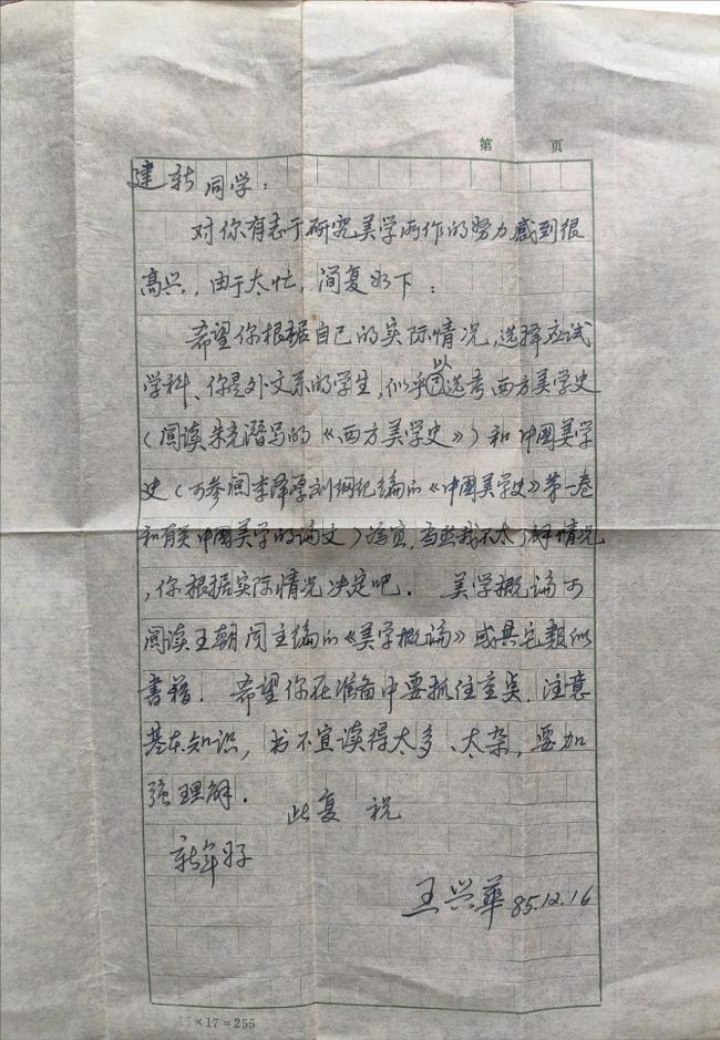 第 页
建新同学：
对你有志于研究美学所作的努力感到很
高兴，由于太忙，简复如下：
希望你根据自己的实际情况，选择应试
学科、你是外文系的学生，似乎可以选考西方美学史
（阅读朱光潜写的《西方美学史》）和中国美学
史（可参阅李泽厚刘纲纪编的《中国美学史》第一卷
和有关中国美学的论文）适宜，当然我不太了解情况
，你根据实际情况决定吧． 美学概论可
阅读王朝闻主编的《美学概论》或其它类似
書籍． 希望你在准备中要抓住重点，注意
基本知识，书不宜读得太多、太杂，要加
强理解．
此复 祝
新年好
王兴華 85.12.16
15×17＝255